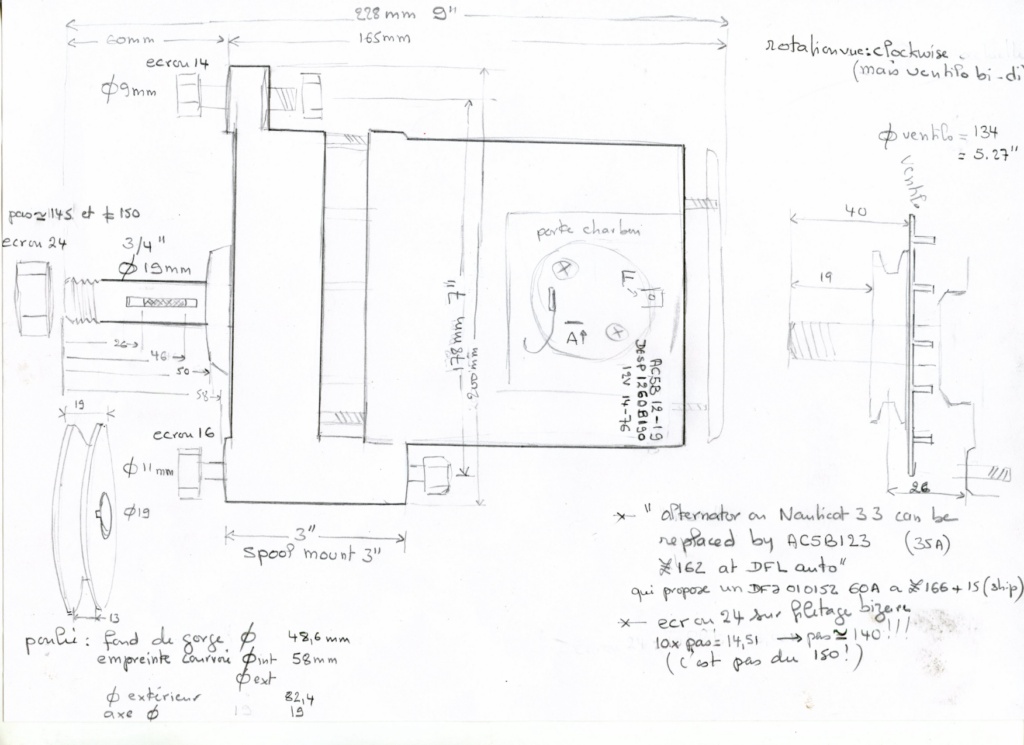 228mm 9"
60mm
165mm
rotation vue: clockwise.
(mais ventilo bi-di
ecrou 14
Φ9mm
Φ ventilo = 134
= 5.27"
ventilo
pas ≃ 145 et ≠ 150
ecrou 24
3/4"
Φ 19mm
40
19
porte charbon
F
A↑
178mm 7"
200mm
26
46
50
58
AC5B 12-19
DESP 1260B190
12V 14-76
19
ecrou 16
Φ 11mm
Φ19
13
26
3"
Spool mount 3"
* "alternator on Nauticat 33 can be
replaced by AC5B123 (35A)
162 at DFL auto"
qui propose un DFJ 010152 60A a 166 + 15 (ship)
* ecrou 24 sur filetage bizarre
10x pas = 14,51 → pas ≃ 140!!!
(c'est pas du 150!)
poulie: fond de gorge Φ 48,6mm
empreinte courroie Φint 58mm
Φext
Φ extérieur 82,4
axe Φ 19